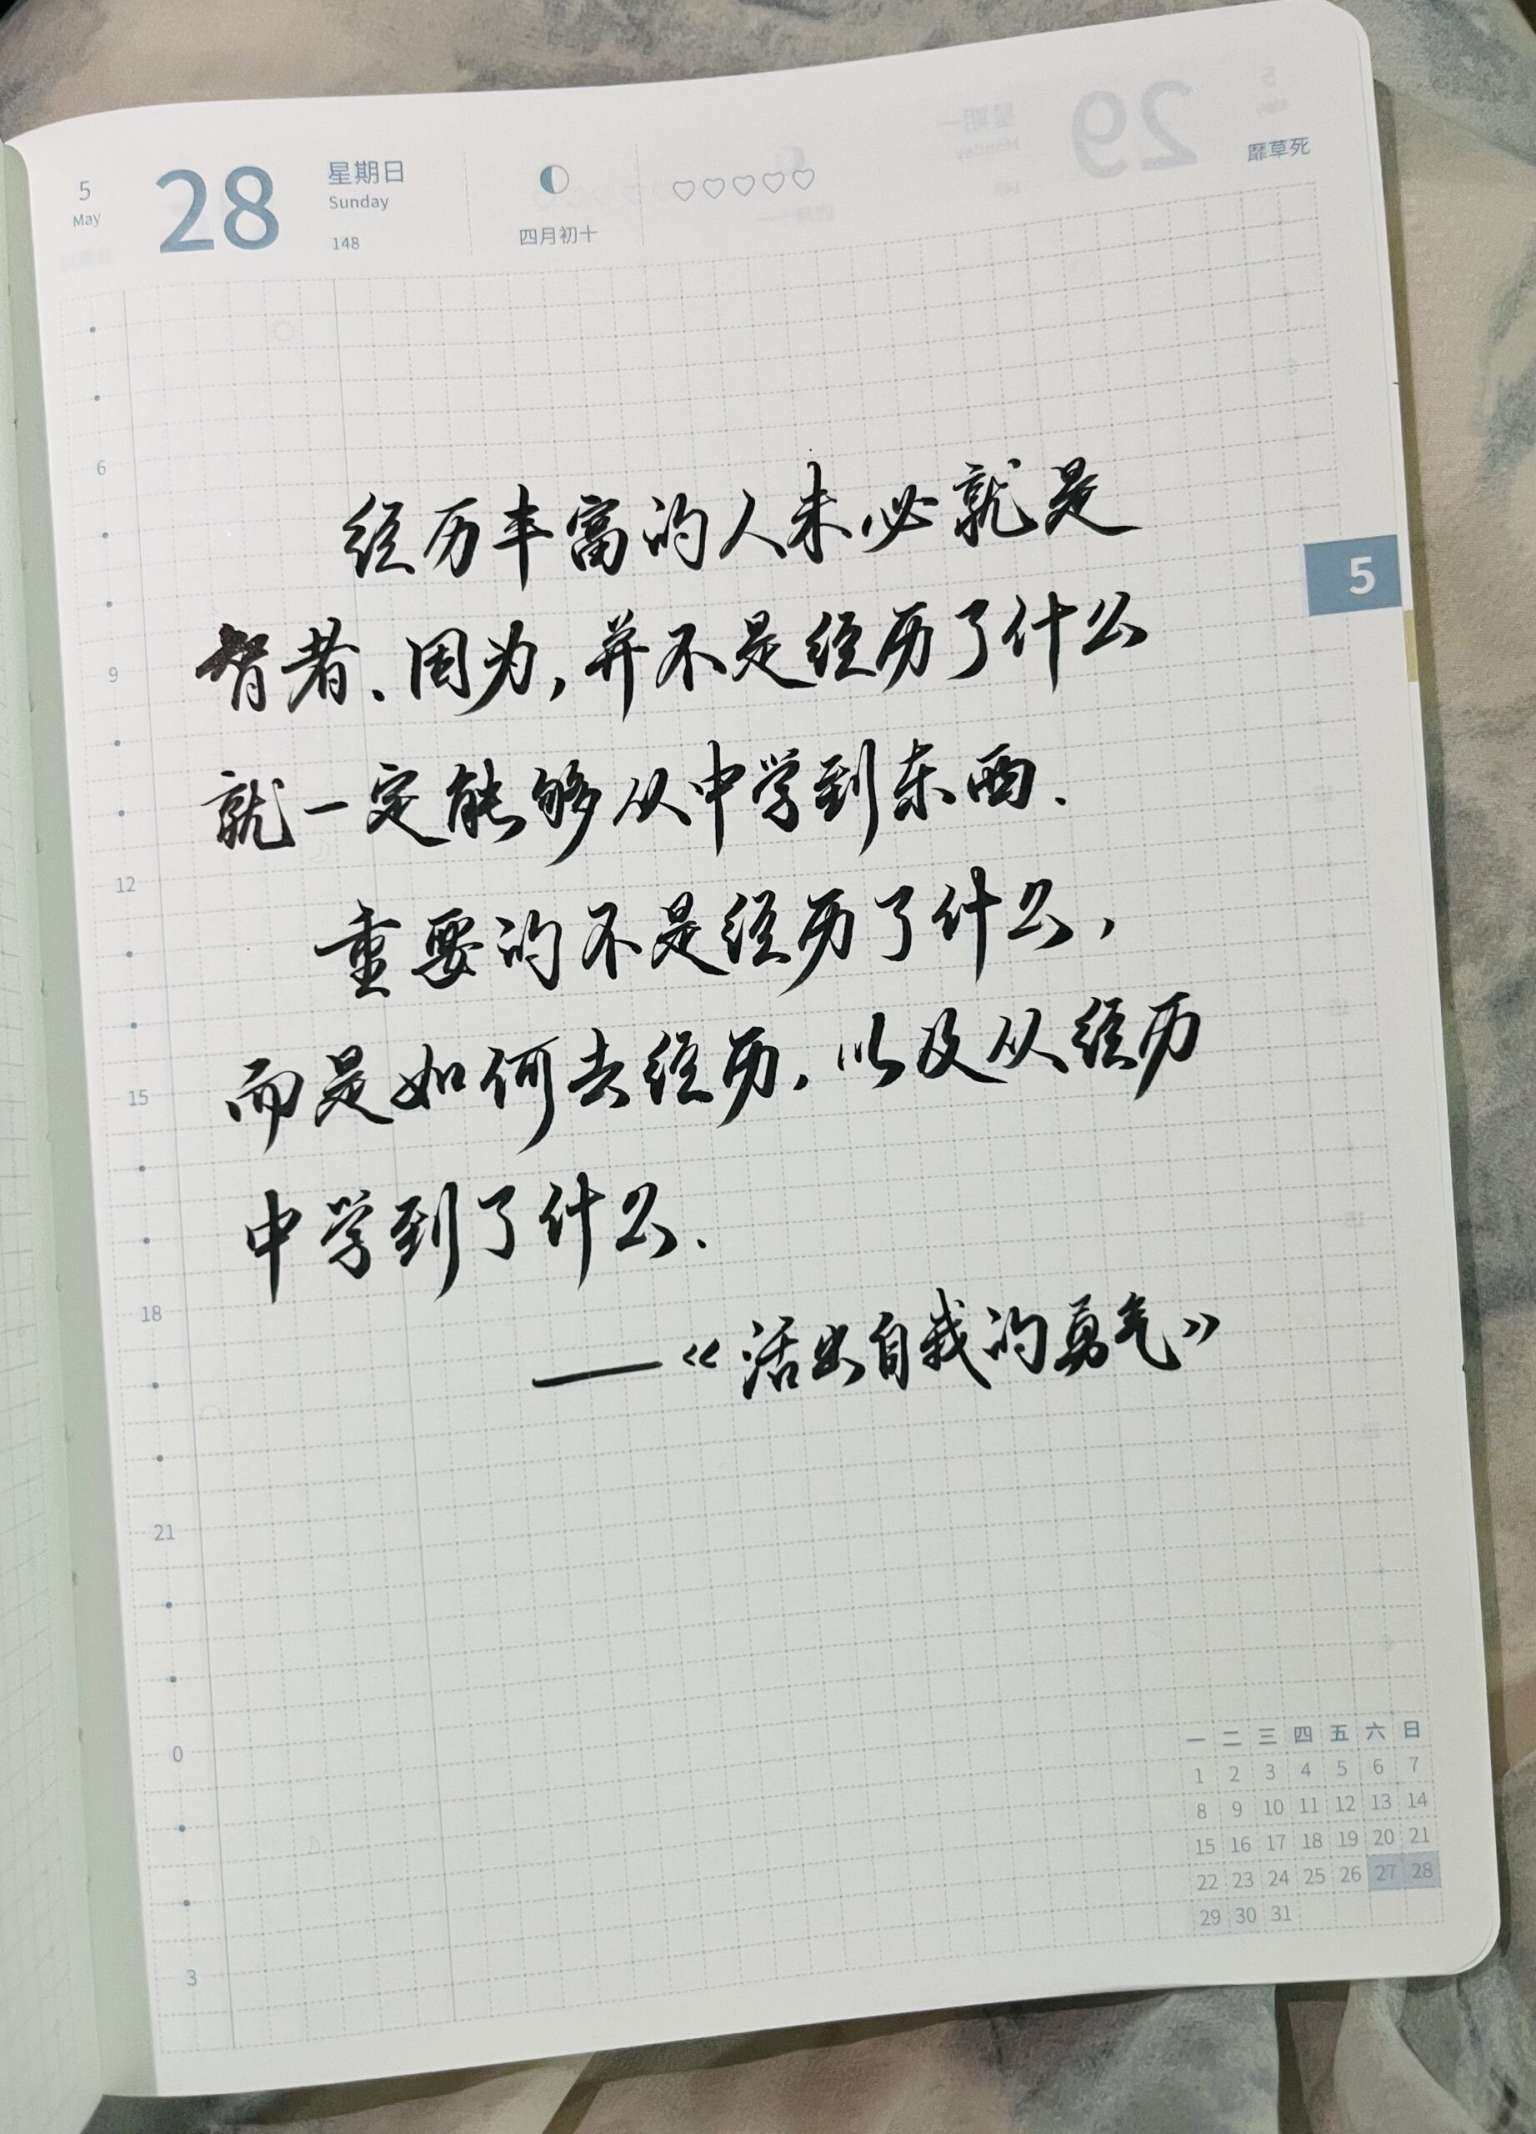 5
May
28
星期日
Sunday
148
四月初十
靡草死
5
经历丰富的人未必就是
智者、因为,并不是经历了什么
就一定能够从中学到东西.
重要的不是经历了什么,
而是如何去经历,以及从经历
中学到了什么.
——《活出自我的勇气》
6
9
12
15
18
21
0
3
一 二 三 四 五 六 日
1 2 3 4 5 6 7
8 9 10 11 12 13 14
15 16 17 18 19 20 21
22 23 24 25 26 27 28
29 30 31